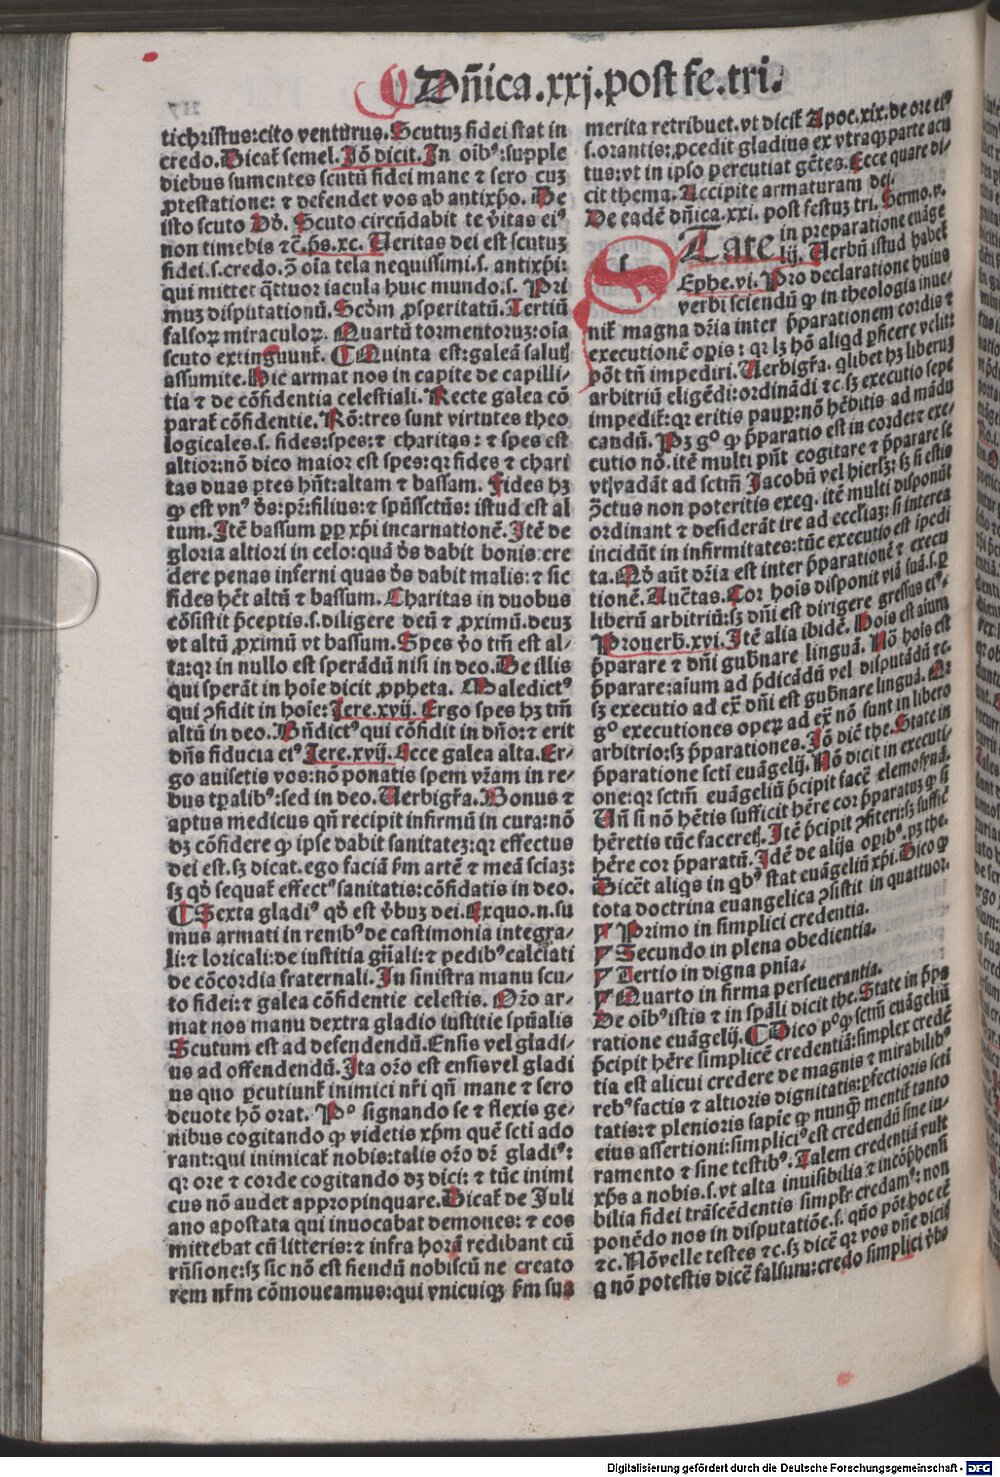 Dn̄ica.xxj.post fe.tri.
tichristus:cito venturus.Scutuʒ fidei stat in
credo.Dicat̃ semel.Jō dicit.In oib⁹:supple
diebus sumentes scutū fidei mane ⁊ sero cuʒ
ꝓtestatione: ⁊ defendet vos ab antixp̄o. De
isto scuto Dd̄. Scuto circūdabit te v̄itas ei⁹
non timebis ⁊c̄.ps̄.xc. Ueritas dei est scutuʒ
fidei.s.credo.ꝯ oīa tela nequissimi.s. antixp̄i:
qui mittet q̄ttuor iacula huic mundo.s. Pri
muʒ disputationū.Scd̄m ꝓsperitatū.Tertiū
falsoꝝ miraculoꝝ. Quartū tormentoruʒ:oīa
scuto extinguunt̃. ¶ Quinta est:galeā salutꝭ
assumite.Hic armat nos in capite de capilli⸗
tia ⁊ de cōfidentia celestiali. Recte galea cō
parat̃ cōfidentie.Rō:tres sunt virtutes theo
logicales.s. fides:spes:⁊ charitas: ⁊ spes est
altior:nō dico maior est spes:qꝛ fides ⁊ chari
tas duas ꝑtes hn̄t:altam ⁊ bassam. Fides hʒ
ꝙ est vn⁹ d̄s:pr̄:filius:⁊ spūssctūs: istud est al
tum.Itē bassum ꝓꝑ xp̄i incarnationē.Itē de
gloria altiori in celo:quā d̄s dabit bonis:cre
dere penas inferni quas d̄s dabit malis:⁊ sic
fides hēt altū ⁊ bassum. Charitas in duobus
cōsistit p̄ceptis.s.diligere deū ⁊ ꝓximū.deuʒ
vt altū ꝓximū vt bassum. Spes v̄o tm̄ est al⸗
ta:qꝛ in nullo est sperādū nisi in deo.De illis
qui sperāt in hoīe dicit ꝓpheta. Maledict⁹
qui ꝯfidit in hoīe:Jere.xvij. Ergo spes hʒ tm̄
altū in deo.Bn̄dict⁹ qui cōfidit in dn̄o:⁊ erit
dn̄s fiducia ei⁹ Jere.xvij.Ecce galea alta.Er⸗
go auisetis vos:nō ponatis spem vr̄am in re⸗
bus tꝑalib⁹:sed in deo.Uerbigr̄a.Bonus ⁊
aptus medicus qn̄ recipit infirmū in cura:nō
dʒ cōfidere ꝙ ipse dabit sanitateʒ:qꝛ effectus
dei est.sʒ dicat.ego faciā ẜm artē ⁊ meā sciaʒ:
sʒ qd̄ sequat̃ effect⁹ sanitatis:cōfidatis in deo.
¶ Sexta gladi⁹ qd̄ est v̄buʒ dei.Exquo.n.su
mus armati in renib⁹ de castimonia integra⸗
li:⁊ loricali:de iustitia gn̄ali:⁊ pedib⁹ calciati
de cōcordia fraternali.In sinistra manu scu⸗
to fidei:⁊ galea cōfidentie celestis. Or̄o ar⸗
mat nos manu dextra gladio iustitie spūalis
Scutum est ad defendendū.Ensis vel gladi⸗
us ad offendendū.Ita or̄o est ensis vel gladi
us quo ꝑcutiunt̃ inimici nr̄i qn̄ mane ⁊ sero
deuote hō orat. P⁰ signando se ⁊ flexis ge⸗
nibus cogitando ꝙ videtis xp̄m quē scti ado
rant:qui inimicat̃ nobis:talis or̄o dr̄ gladi⁹:
qꝛ ore ⁊ corde cogitando dʒ dici: ⁊ tūc inimi
cus nō audet appropinquare.Dicat̃ de Juli
ano apostata qui inuocabat demones: ⁊ eos
mittebat cū litteris:⁊ infra horā redibant cū
rn̄sione:sʒ sic nō est fiendū nobiscū ne creato
rem nr̄m cōmoueamus:qui vnicuiqʒ ẜm sua
merita retribuet.vt dicit̃ Apoc.xix.de ore ei⁹
s.orantis:ꝓcedit gladius ex vtraqʒ parte acu
tus:vt in ipso percutiat gētes.Ecce quare di⸗
cit thema. Accipite armaturam dei.
De eadē dn̄ica.xxi. post festuʒ tri. Sermo.v.
STate in preparatione euāge
lij. Uerbū istud habet̃
Ephe.vi. Pro declaratione huius
verbi sciendū ꝙ in theologia inue⸗
nit̃ magna dr̄ia inter p̄parationem cordis ⁊
executionē opis: qꝛ lʒ hō aliqd ꝑficere velit:
pōt tn̄ impediri. Uerbigr̄a. qlibet hʒ liberuʒ
arbitriū eligēdi:ordināndi ⁊c.sʒ executio sepe
impedit̃:qꝛ eritis pauꝑ:nō hēbitis ad mādu
candū. Pʒ g⁰ ꝙ p̄paratio est in corde:⁊ exe⸗
cutio nō. itē multi pn̄t cogitare ⁊ p̄parare se
vt vadāt ad sctm̄ Jacobū vel hierlʒ: sʒ si estis
ꝯctus non poteritis exeq. itē multi disponūt
ordinant ⁊ desiderāt ire ad eccl̄iaʒ: si interea
incidūt in infirmitates:tūc executio est ipedi
ta.Qd̄ aūt dr̄ia est inter p̄parationē ⁊ execu
tionē. Auctas.Cor hoīs disponit viā suā.s.ꝑ
liberū arbitriū:sʒ dn̄i est dirigere gressus ei⁹.
Prouerb̄.xvi.Itē alia ibidē. Hoīs est aīum
p̄parare ⁊ dn̄i gub̄nare linguā. Nō hoīs est
p̄parare:aīum ad p̄dicādū vel disputādū ⁊c.
sʒ executio ad ex̄ dn̄i est gub̄nare linguā.
g⁰ executiones operꝫ ad ex̄ nō sunt in libero
arbitrio:sʒ p̄parationes. Jō dic̄ the. State in
p̄paratione scti euāgelij. Nō dicit in executi⸗
one:qꝛ sctm̄ euāgeliū p̄cipit facē elemosynā.
Un̄ si nō hētis sufficit hēre cor p̄paratuʒ ꝙ si
hēretis tūc faceretꝭ. Itē p̄cipit ꝯfiteri:sʒ suffic̄
hēre cor p̄paratū.Idē de alijs opib⁹. pʒ the.
Dicēt aliqs in qb⁹ stat euāgeliū xp̄i. Dico ꝙ
tota doctrina euangelica ꝯsistit in quattuor.
Primo in simplici credentia.
Secundo in plena obedientia.
Tertio in digna pn̄ia.
Quarto in firma perseuerantia.
De oib⁹ istis ⁊ in sp̄āli dicit the.State in p̄pa
ratione euāgelij. ¶ Dico p⁰ ꝙ sctm̄ euāgeliū
p̄cipit hēre simplicē credentiā:simplex credē
tia est alicui credere de magnis ⁊ mirabilib⁹
reb⁹ factis ⁊ altioris dignitatis:ꝑfectioris scti
tatis:⁊ plenioris sapīe ꝙ nunqʒ mentit̃ tanto
eius assertioni:simplici⁹ est credendū sine iu⸗
ramento ⁊ sine testib⁹. Talem credentiā vult
xp̄s a nobis.s.vt alta inuisibilia ⁊ incōp̄hensi
bilia fidei trāscēdentis simplr̄ credam⁹: non
ponēdo nos in disputatiōe.s. quō pōt hoc eē
⁊c. Nōvelle testes ⁊c.sʒ dicē qꝛ vos dn̄e dicis
q nō potestis dicē falsum:credo simplici v̄bo
Digitalisierung gefördert durch die Deutsche Forschungsgemeinschaft - DFG